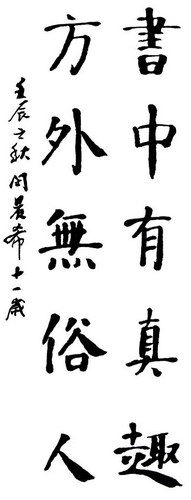 書中有真趣
方外無俗人
壬辰之秋閆若希十一歲